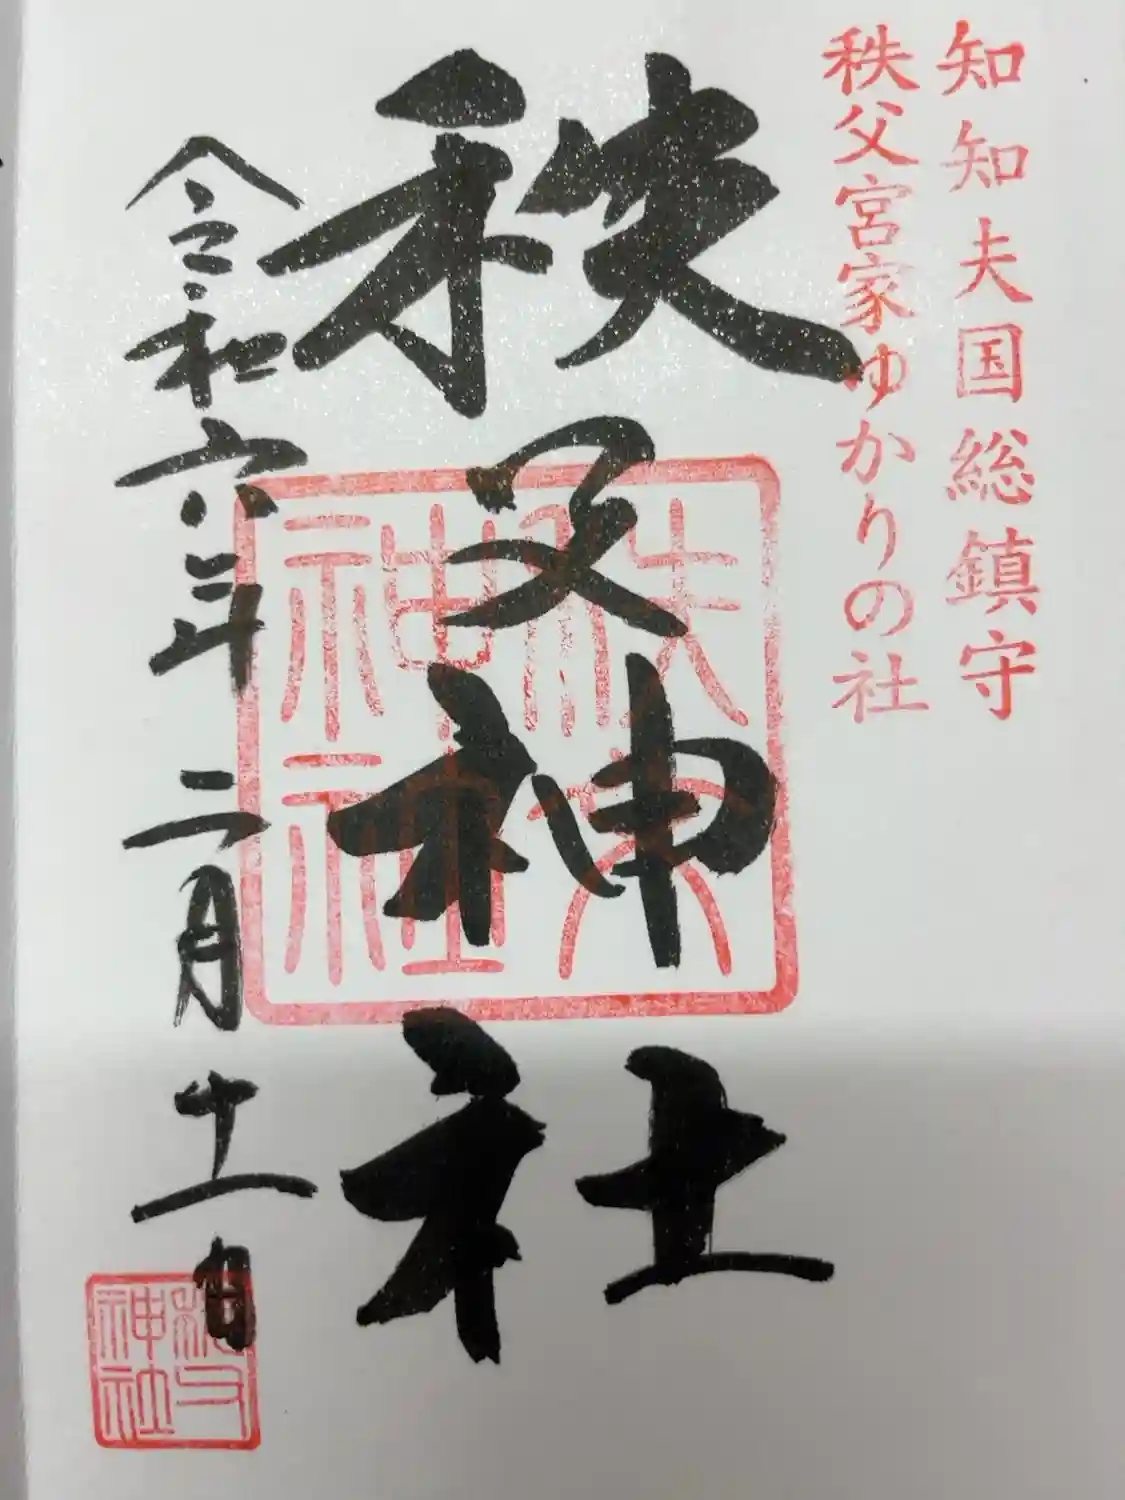 知知夫国総鎮守
秩父宮家ゆかりの社
秩父神社
令和六年二月十一日
秩父
神社